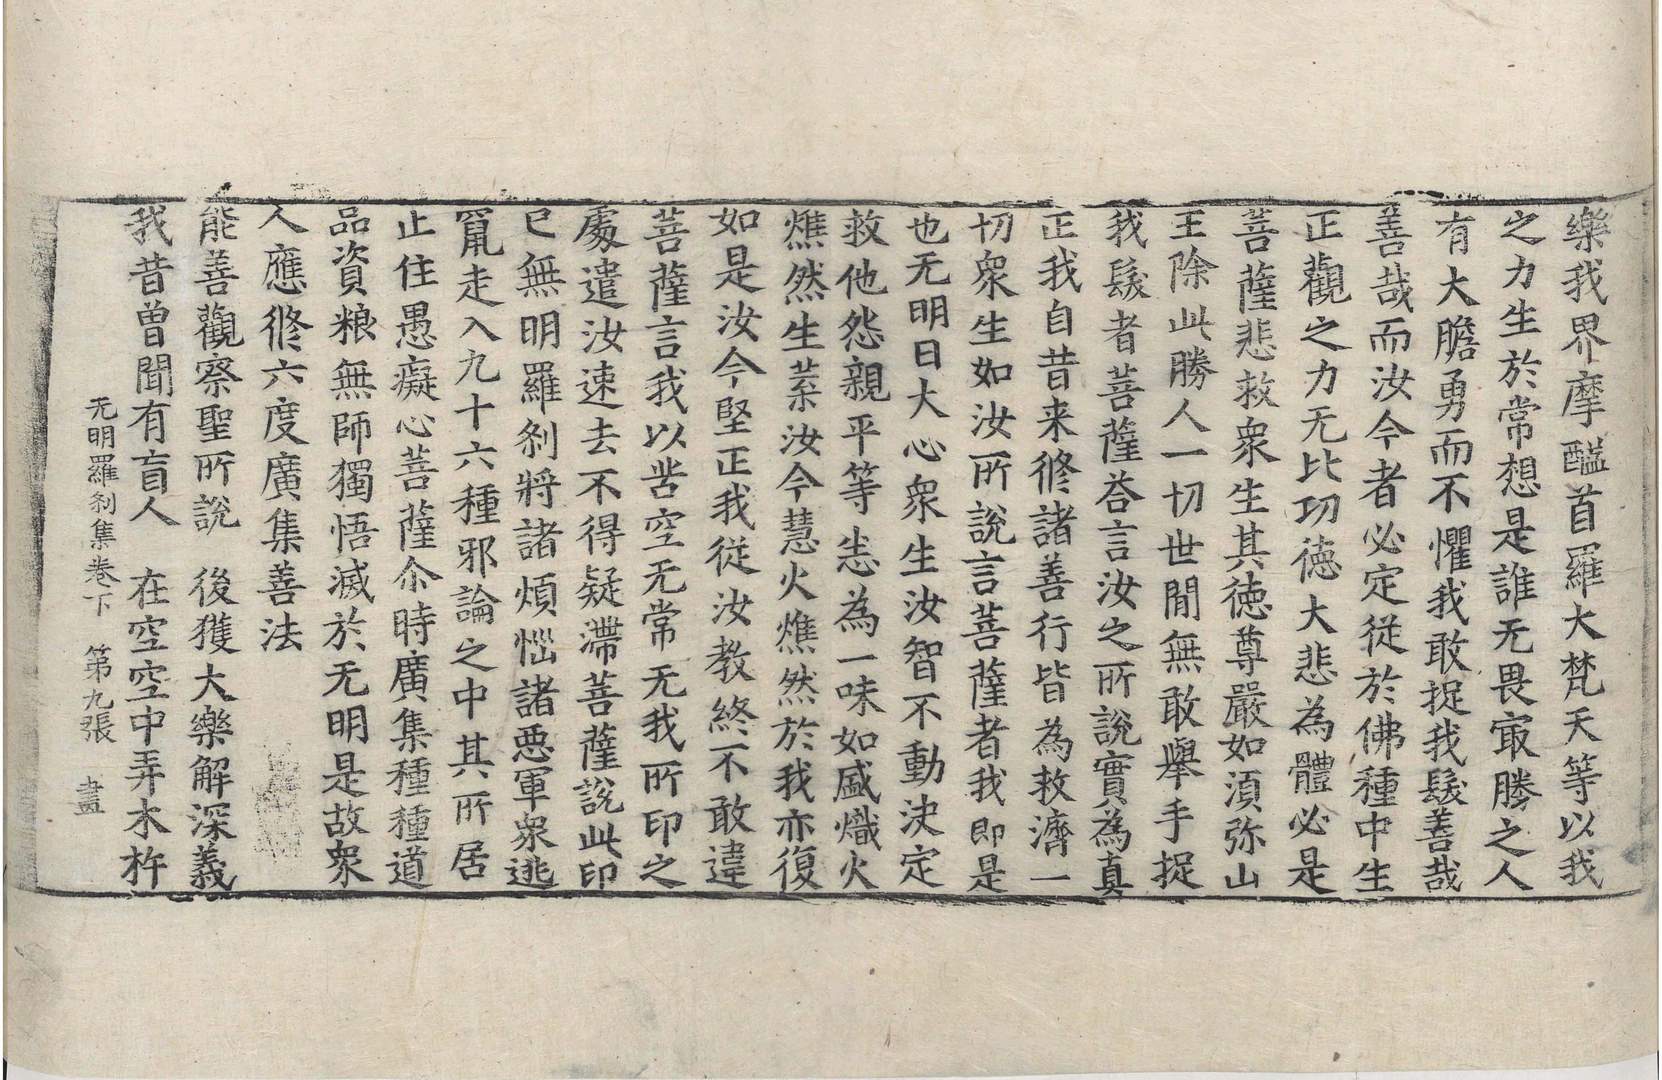 樂我界摩醯首羅大梵天等以我
之力生於常想是誰无畏㝡勝之人
有大膽勇而不懼我敢捉我髮善哉
善哉而汝今者必定從於佛種中生
正觀之力无比功德大悲為體必是
菩薩悲救衆生其德尊嚴如須弥山
王除此勝人一切世間無敢舉手捉
我髮者菩薩荅言汝之所說實為真
正我自昔来修諸善行皆為救濟一
切衆生如汝所說言菩薩者我即是
也无明曰大心衆生汝智不動決定
救他怨親平等恙為一味如盛熾火
燋然生菜汝今慧火燋然於我亦復
如是汝今堅正我從汝教終不敢違
菩薩言我以苦空无常无我所印之
處遣汝速去不得疑滯菩薩說此印
已無明羅剎將諸煩惱諸惡軍衆逃
竄走入九十六種邪論之中其所居
止住愚癡心菩薩尒時廣集種種道
品資粮無師獨悟滅於无明是故衆
人應修六度廣集善法
能善觀察聖所說　後獲大樂解深義
我昔曾聞有盲人　在空空中弄木杵
无明羅剎集卷下　第九張　盡